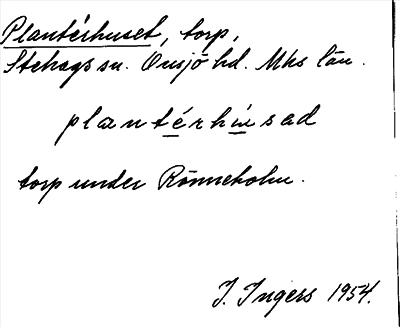 Plantérhuset, torp,
Stehags sn. Onsjö hd. Mhs län.
plantérhusad
torp under Rönneholm.
I. Ingers 1954.